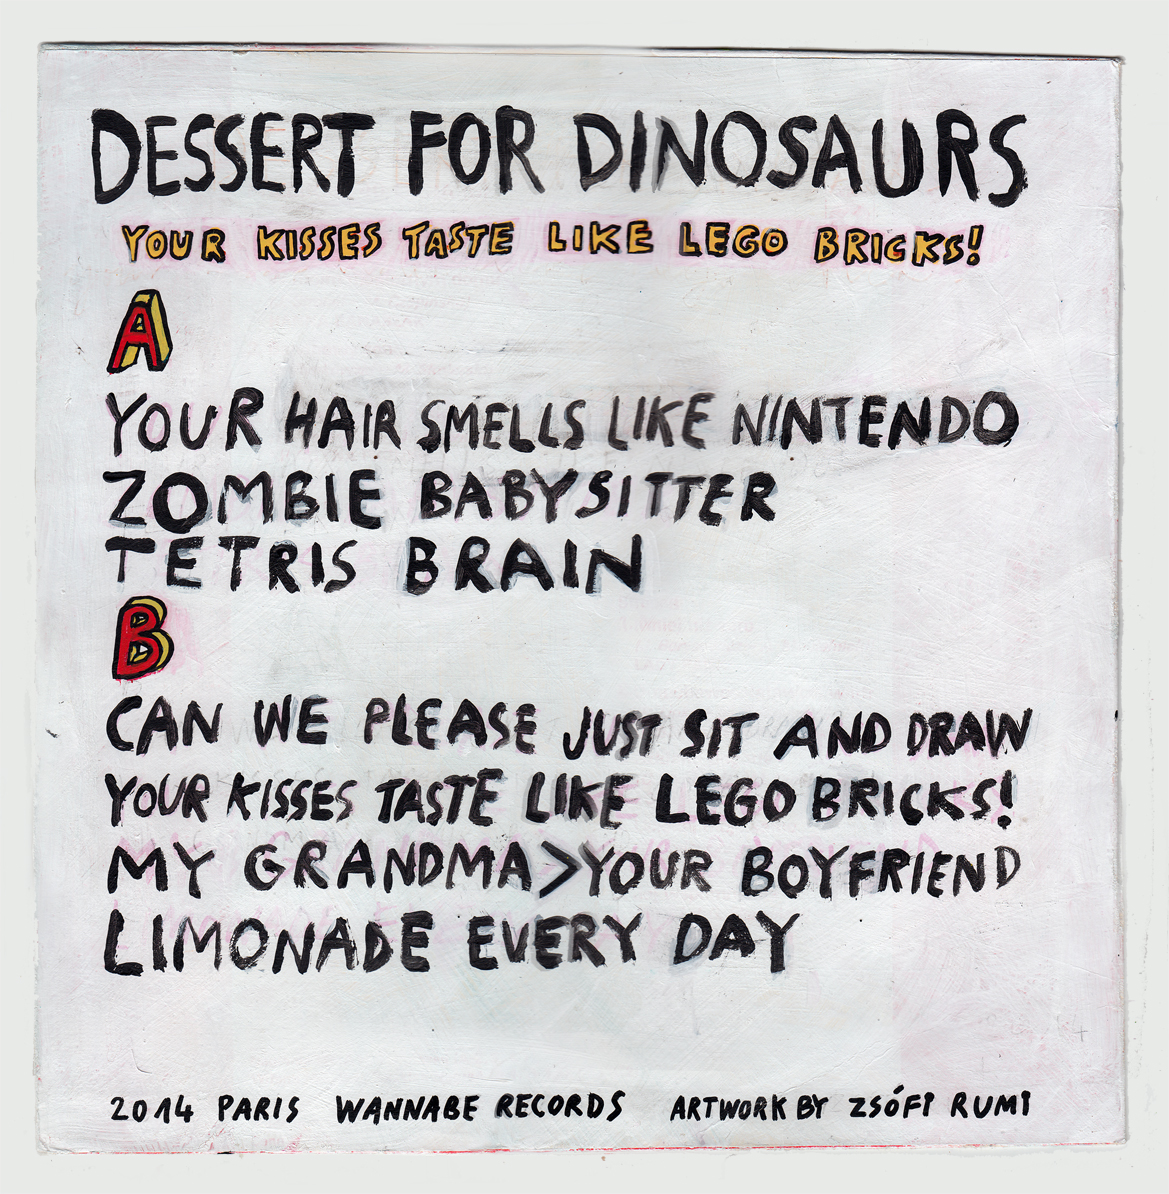 DESSERT FOR DINOSAURS
YOUR KISSES TASTE LIKE LEGO BRICKS!
A
YOUR HAIR SMELLS LIKE NINTENDO
ZOMBIE BABYSITTER
TETRIS BRAIN
B
CAN WE PLEASE JUST SIT AND DRAW
YOUR KISSES TASTE LIKE LEGO BRICKS!
MY GRANDMA>YOUR BOYFRIEND
LIMONADE EVERY DAY
2014 PARIS WANNABE RECORDS ARTWORK BY ZSÓFI RUMI